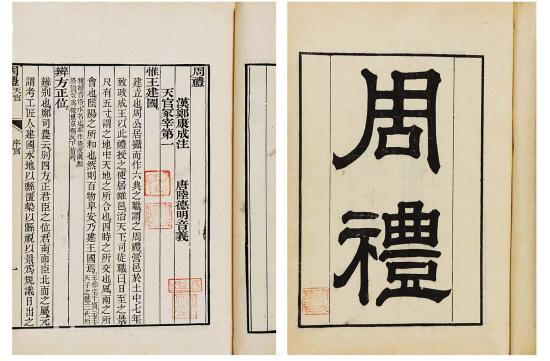 周禮
周禮
天官冢宰第一
漢鄭康成注 唐陸德明音義
惟王建國
建立也周公居攝而作六典之職謂之周禮營邑於土中七年
致政成王以此禮授之使居雒邑治天下司徒職曰日至之景
尺有五寸謂之地中天地之所合也四時之所交也風雨之所
會也陰陽之所和也然則百物阜安乃建王國焉
辨方正位
辨別也鄭司農云別四方正君臣之位君南面臣北面之屬元
謂考工匠人建國水地以縣置槷以縣眡以景爲規識日出之
周禮 天官 序官 一